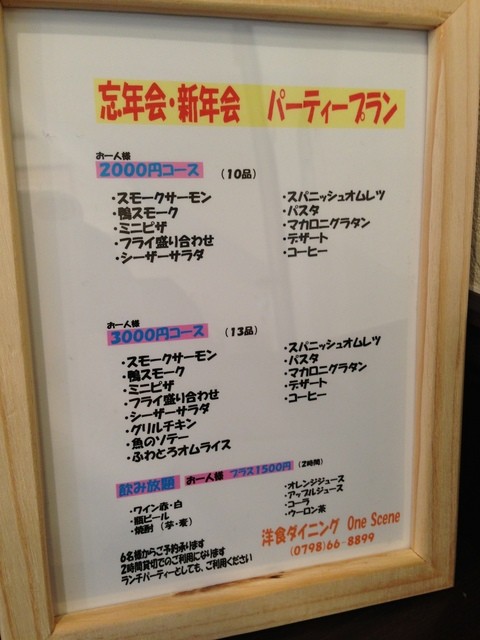 忘年会・新年会 パーティープラン
お一人様
2000円コース （10品）
・スモークサーモン
・鴨スモーク
・ミニピザ
・フライ盛り合わせ
・シーザーサラダ
・スパニッシュオムレツ
・パスタ
・マカロニグラタン
・デザート
・コーヒー
お一人様
3000円コース （13品）
・スモークサーモン
・鴨スモーク
・ミニピザ
・フライ盛り合わせ
・シーザーサラダ
・グリルチキン
・魚のソテー
・ふわとろオムライス
・スパニッシュオムレツ
・パスタ
・マカロニグラタン
・デザート
・コーヒー
飲み放題 お一人様 プラス1500円 （2時間）
・ワイン赤・白
・瓶ビール
・焼酎（芋・麦）
・オレンジジュース
・アップルジュース
・コーラ
・ウーロン茶
6名様からご予約承ります
2時間貸切でのご利用になります
ランチパーティーとしても、ご利用ください
洋食ダイニング One Scene
(0798)66-8899